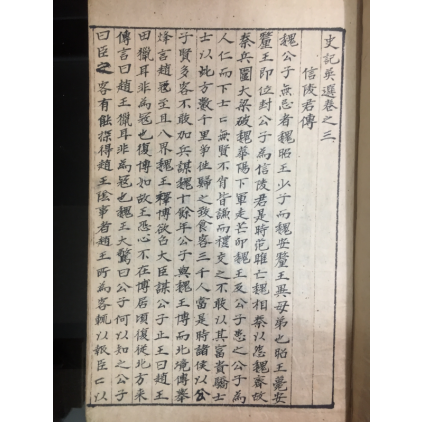 史記英選卷之三
信陵君傳
魏公子無忌者魏昭王少子而魏安釐王異母弟也昭王薨安
釐王即位封公子為信陵君是時范睢亡魏相秦以怨魏齊故
秦兵圍大梁破魏華陽下軍走芒卯魏王及公子患之公子為
人仁而下士士無賢不肖皆謙而禮交之不敢以其富貴驕士
士以此方數千里爭徃歸之致食客三千人當是時諸侯以公
子賢多客不敢加兵謀魏十餘年公子與魏王博而北境傳擧
烽言趙寇至且入界魏王釋博欲召大臣謀公子止王曰趙王
田獵耳非為寇也復博如故王恐心不在博居頃復從北方來
傳言曰趙王獵耳非為寇也魏王大驚曰公子何以知之公子
曰臣之客有能深得趙王陰事者趙王所為客輒以報臣臣以